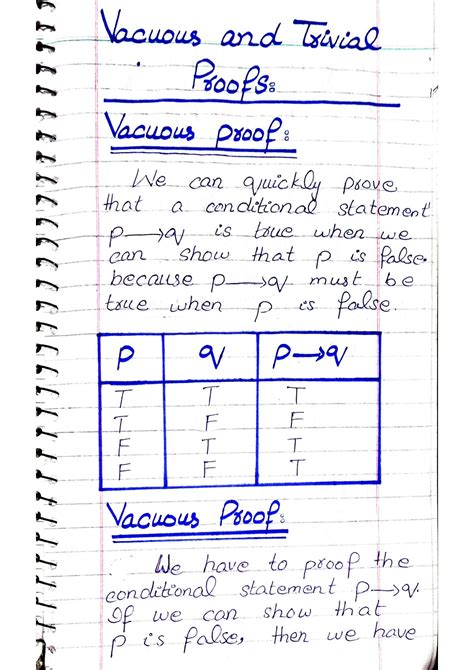 Vacuous and Trivial
Proofs:
Vacuous proof:
We can quickly prove
that a conditional statement
p→q is true when we
can show that p is false.
because p→q must be
true when p is false.
p q p→q
T T T
T F F
F T T
F F T
Vacuous Proof:
We have to proof the
conditional statement p→q.
If we can show that
p is false, then we have